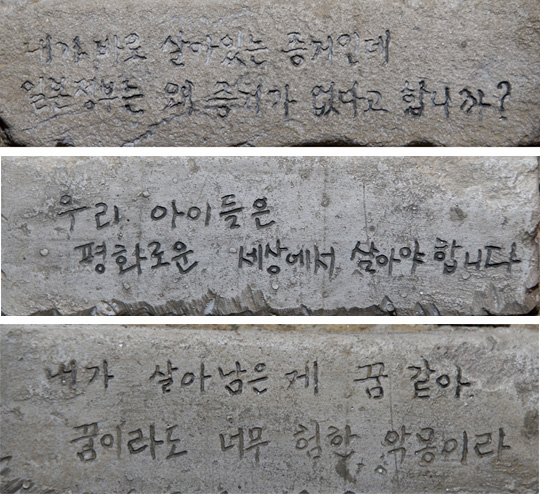 내가 바로 살아있는 증거인데
일본정부는 왜 증거가 없다고 합니까?
우리 아이들은
평화로운 세상에서 살아야 합니다
내가 살아남은 게 꿈 같아
꿈이라도 너무 험한 악몽이라